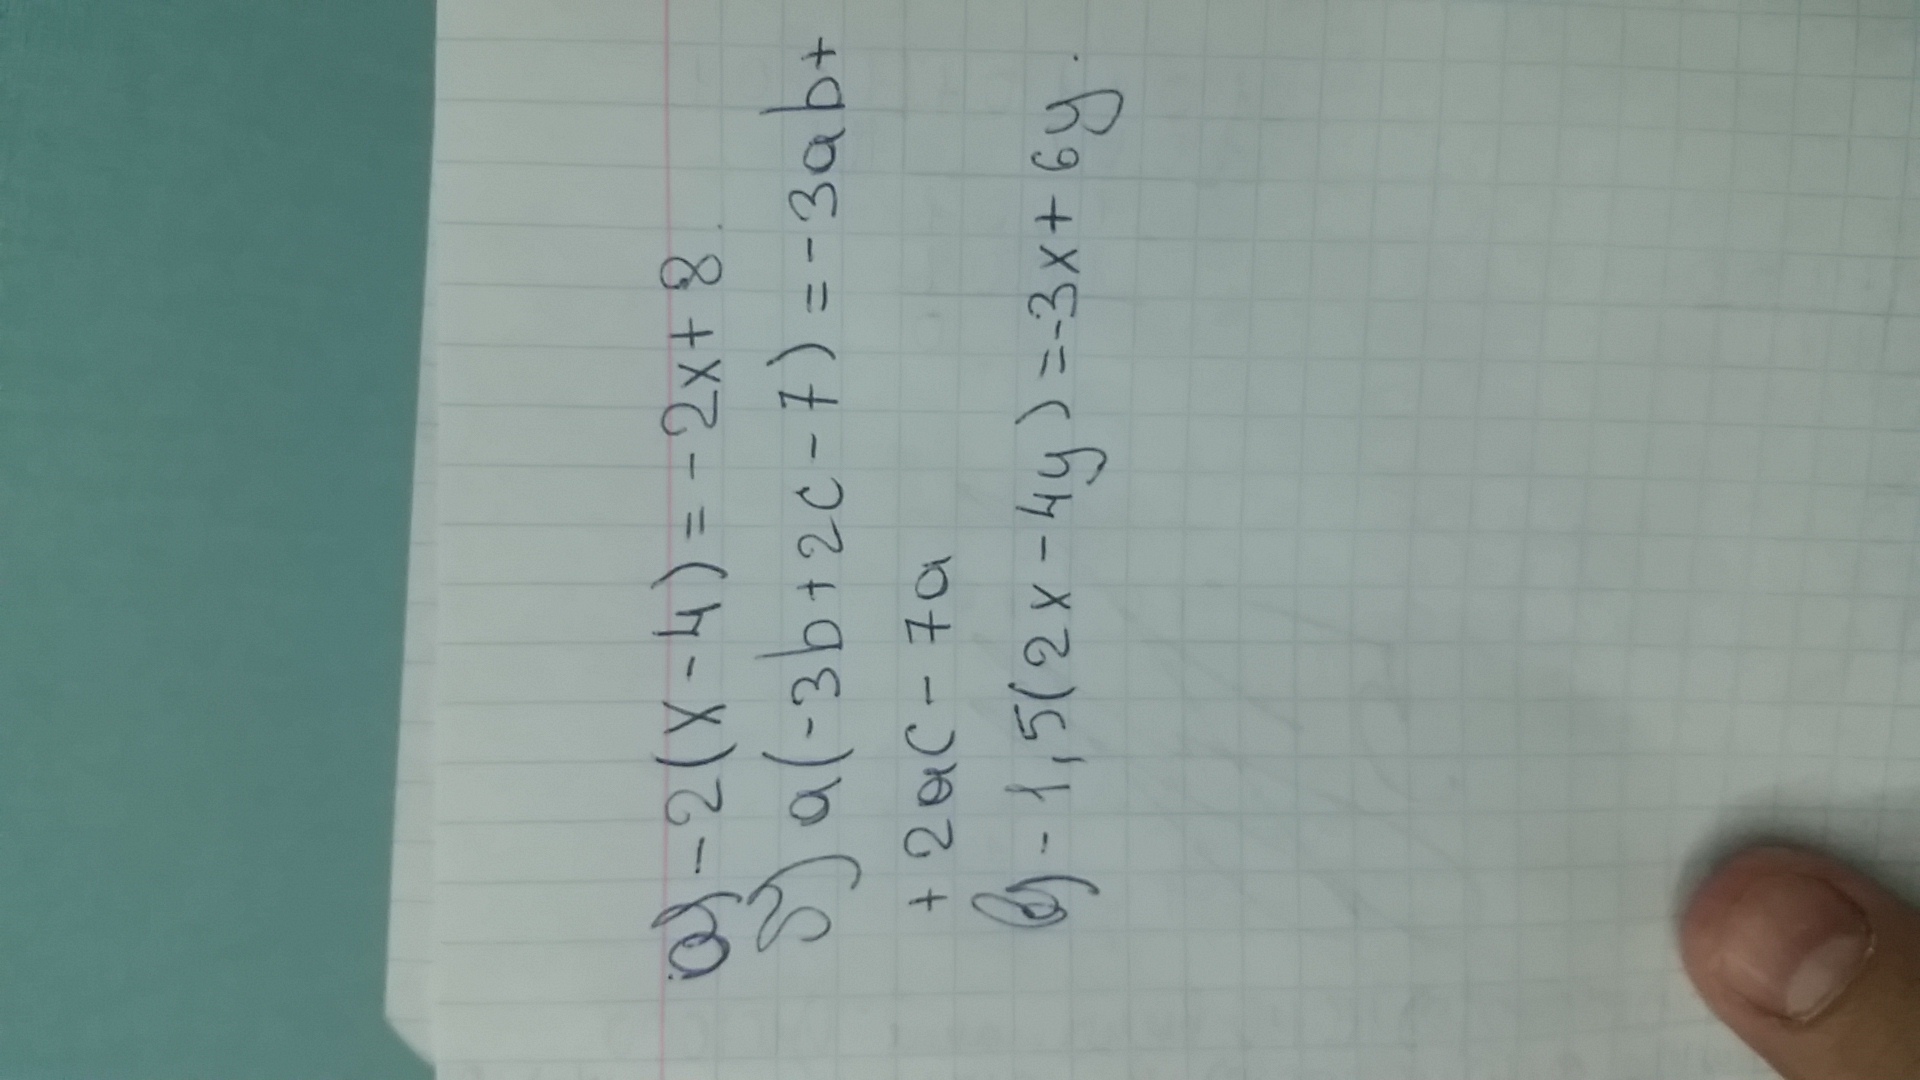 а) -2(x-4)=-2x+8.
б) a(-3b+2c-7)=-3ab+
+2ac-7a
в) -1,5(2x-4y)=-3x+6y.